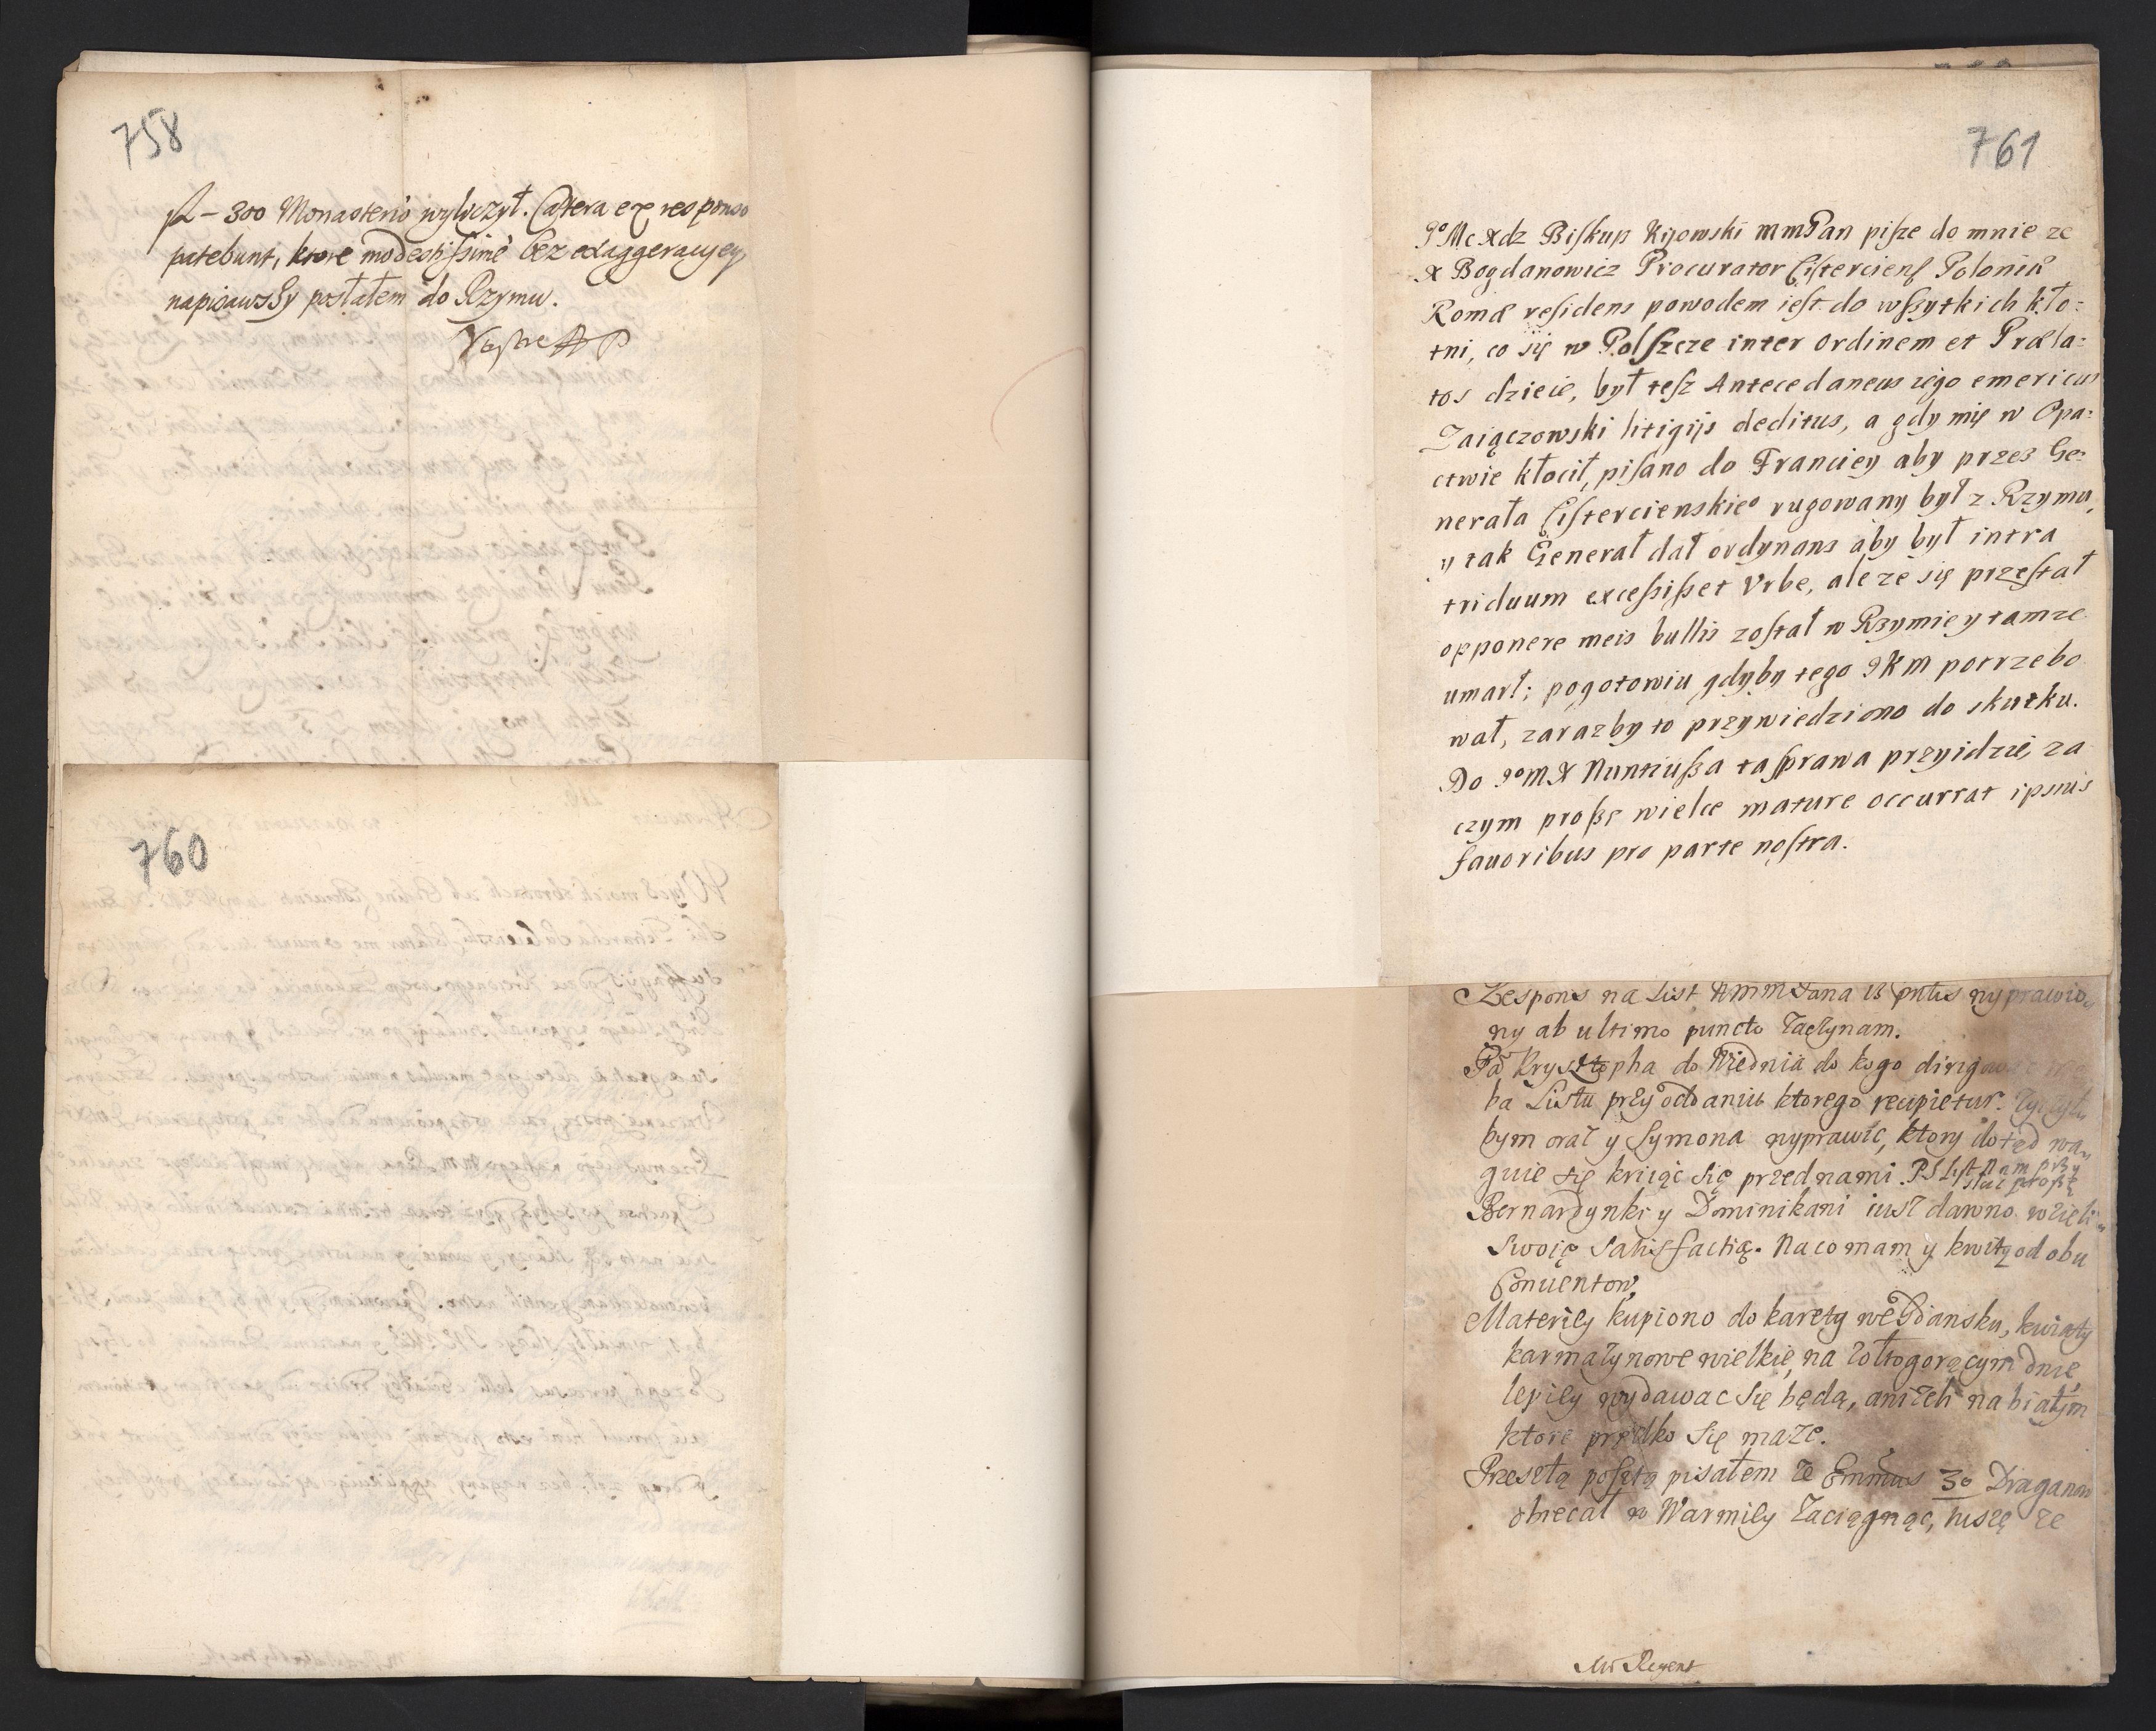 758
fl – 300 Monasterio wyliczył. Cætera ex responso
patebunt, ktore modestissime bez exaggeracyey
napisawszy posłałem do Rzymu.
760
761
JoMc Xdz Biskup Kijowski mmPan pisze do mnie ze
X Bogdanowicz Procurator Cisterciens Poloniæ
Romæ residens powodem iest do wszytkich kło:
tni, co się w Polszcze inter ordinem et Præla:
tos dzieie, był tesz Antecedaneus iego emericus
Zaiączowski litigijs deditus, a gdy mię w Opa:
ctwie kłocił, pisano do Franciey aby przes Ge:
nerała Cistercienskieo rugowany był z Rzymu,
y tak Generał dał ordynans aby był intra
triduum excessisset Urbe, ale ze się przestał
opponere meis bullis został w Rzymie y tamze
umarł; pogotowiu gdyby tego JKM potrzebo
wał, zarazby to przywiedziono do skutku.
Do JoM X Nuntiusza ta sprawa przyidzie, za
czym proszę wielce mature occurrat ipsius
fauoribus pro parte nostra.
Respons na List WMMPana 13 pntis wyprawio,
ny ab ultimo puncto zaczynam.
Pa Krysztopha do Wiednia do kogo dirigo
ba Listu przy oddaniu ktorego recipietur.
bym orał y Symona wyprawic, ktory dotęd wa,
guie się kriiąc się przed nami. PS List Nam przy
słac proszę
Bernardynki y Dominikani iusz dawno wzięli
swoię satisfactią. Na co mam y kwity od obu
Conuentow,
Materiiy kupiono do karety we Gdansku, kwiaty
karmazynowe wielkie, na żółtogorącym dnie,
lepiiy wydawac się będą, anizeli na białym
ktore prędko się maze.
Przeszłą posztą pisałem ze Emmus 30 Draganow
obiecał w Warmiiy zaciągnąc, tuszę ze
Mr Regent